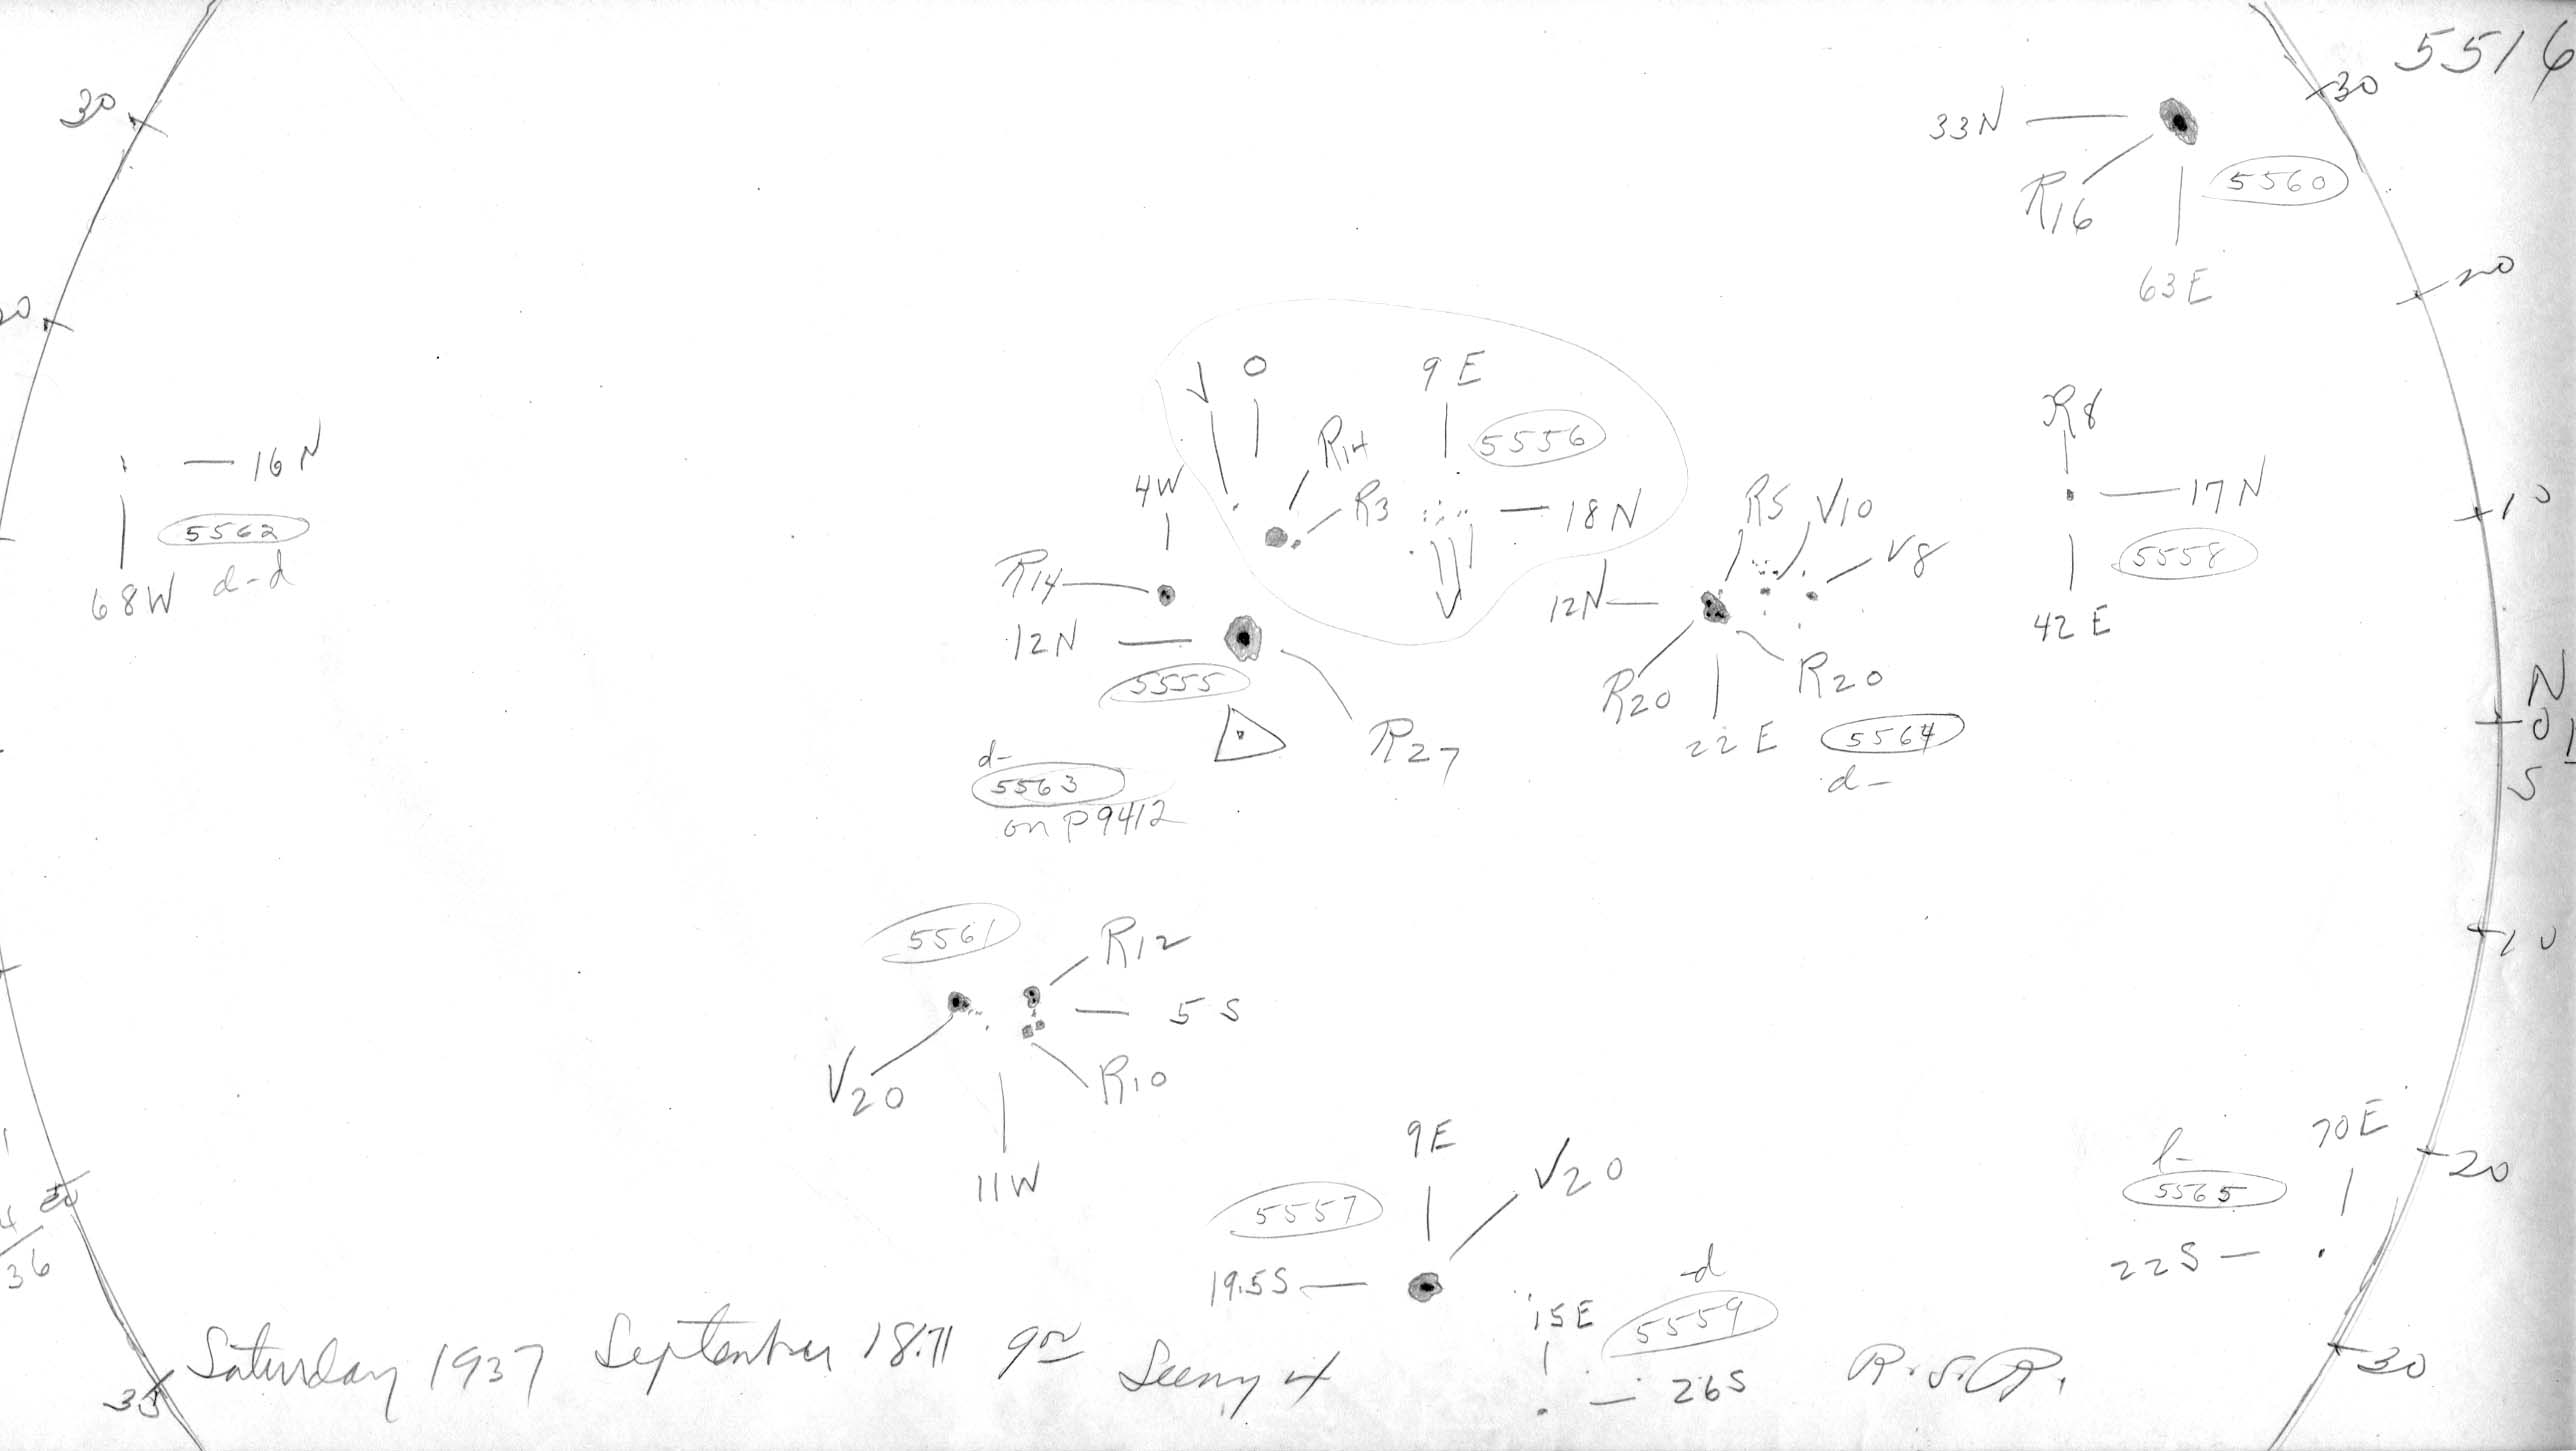 5516
30
30
33N
5560
R16
20
63E
0
9 E
R8
R14
5556
16 N
4W
R3
18N
R5
V10
17 N
10
5562
V8
5558
68W
d-d
R14
12N
42 E
12N
R20
R20
N
5555
0
R27
22 E
5564
S
d-
d-
5563
on p9412
5561
R12
10
5 S
V20
R10
11W
9E
V20
70E
l-
5565
20
5557
22S
19.5S
-d
36
15E
5559
Saturday 1937 September 18.71 900 Seeing 4
26S
R.S.R.
30